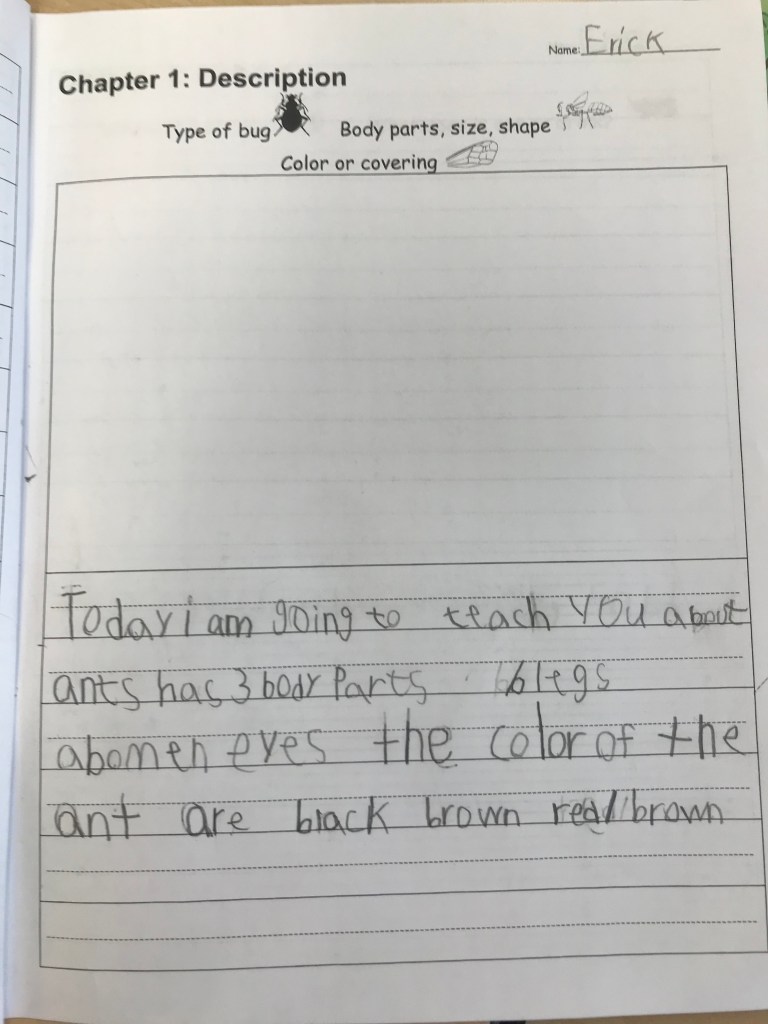 Name: Erick
Chapter 1: Description
Type of bug Body parts, size, shape
Color or covering
Today i am going to teach YOU about
ants has 3 body Parts 6 legs
abomen eyes the color of the
ant are black brown red/brown